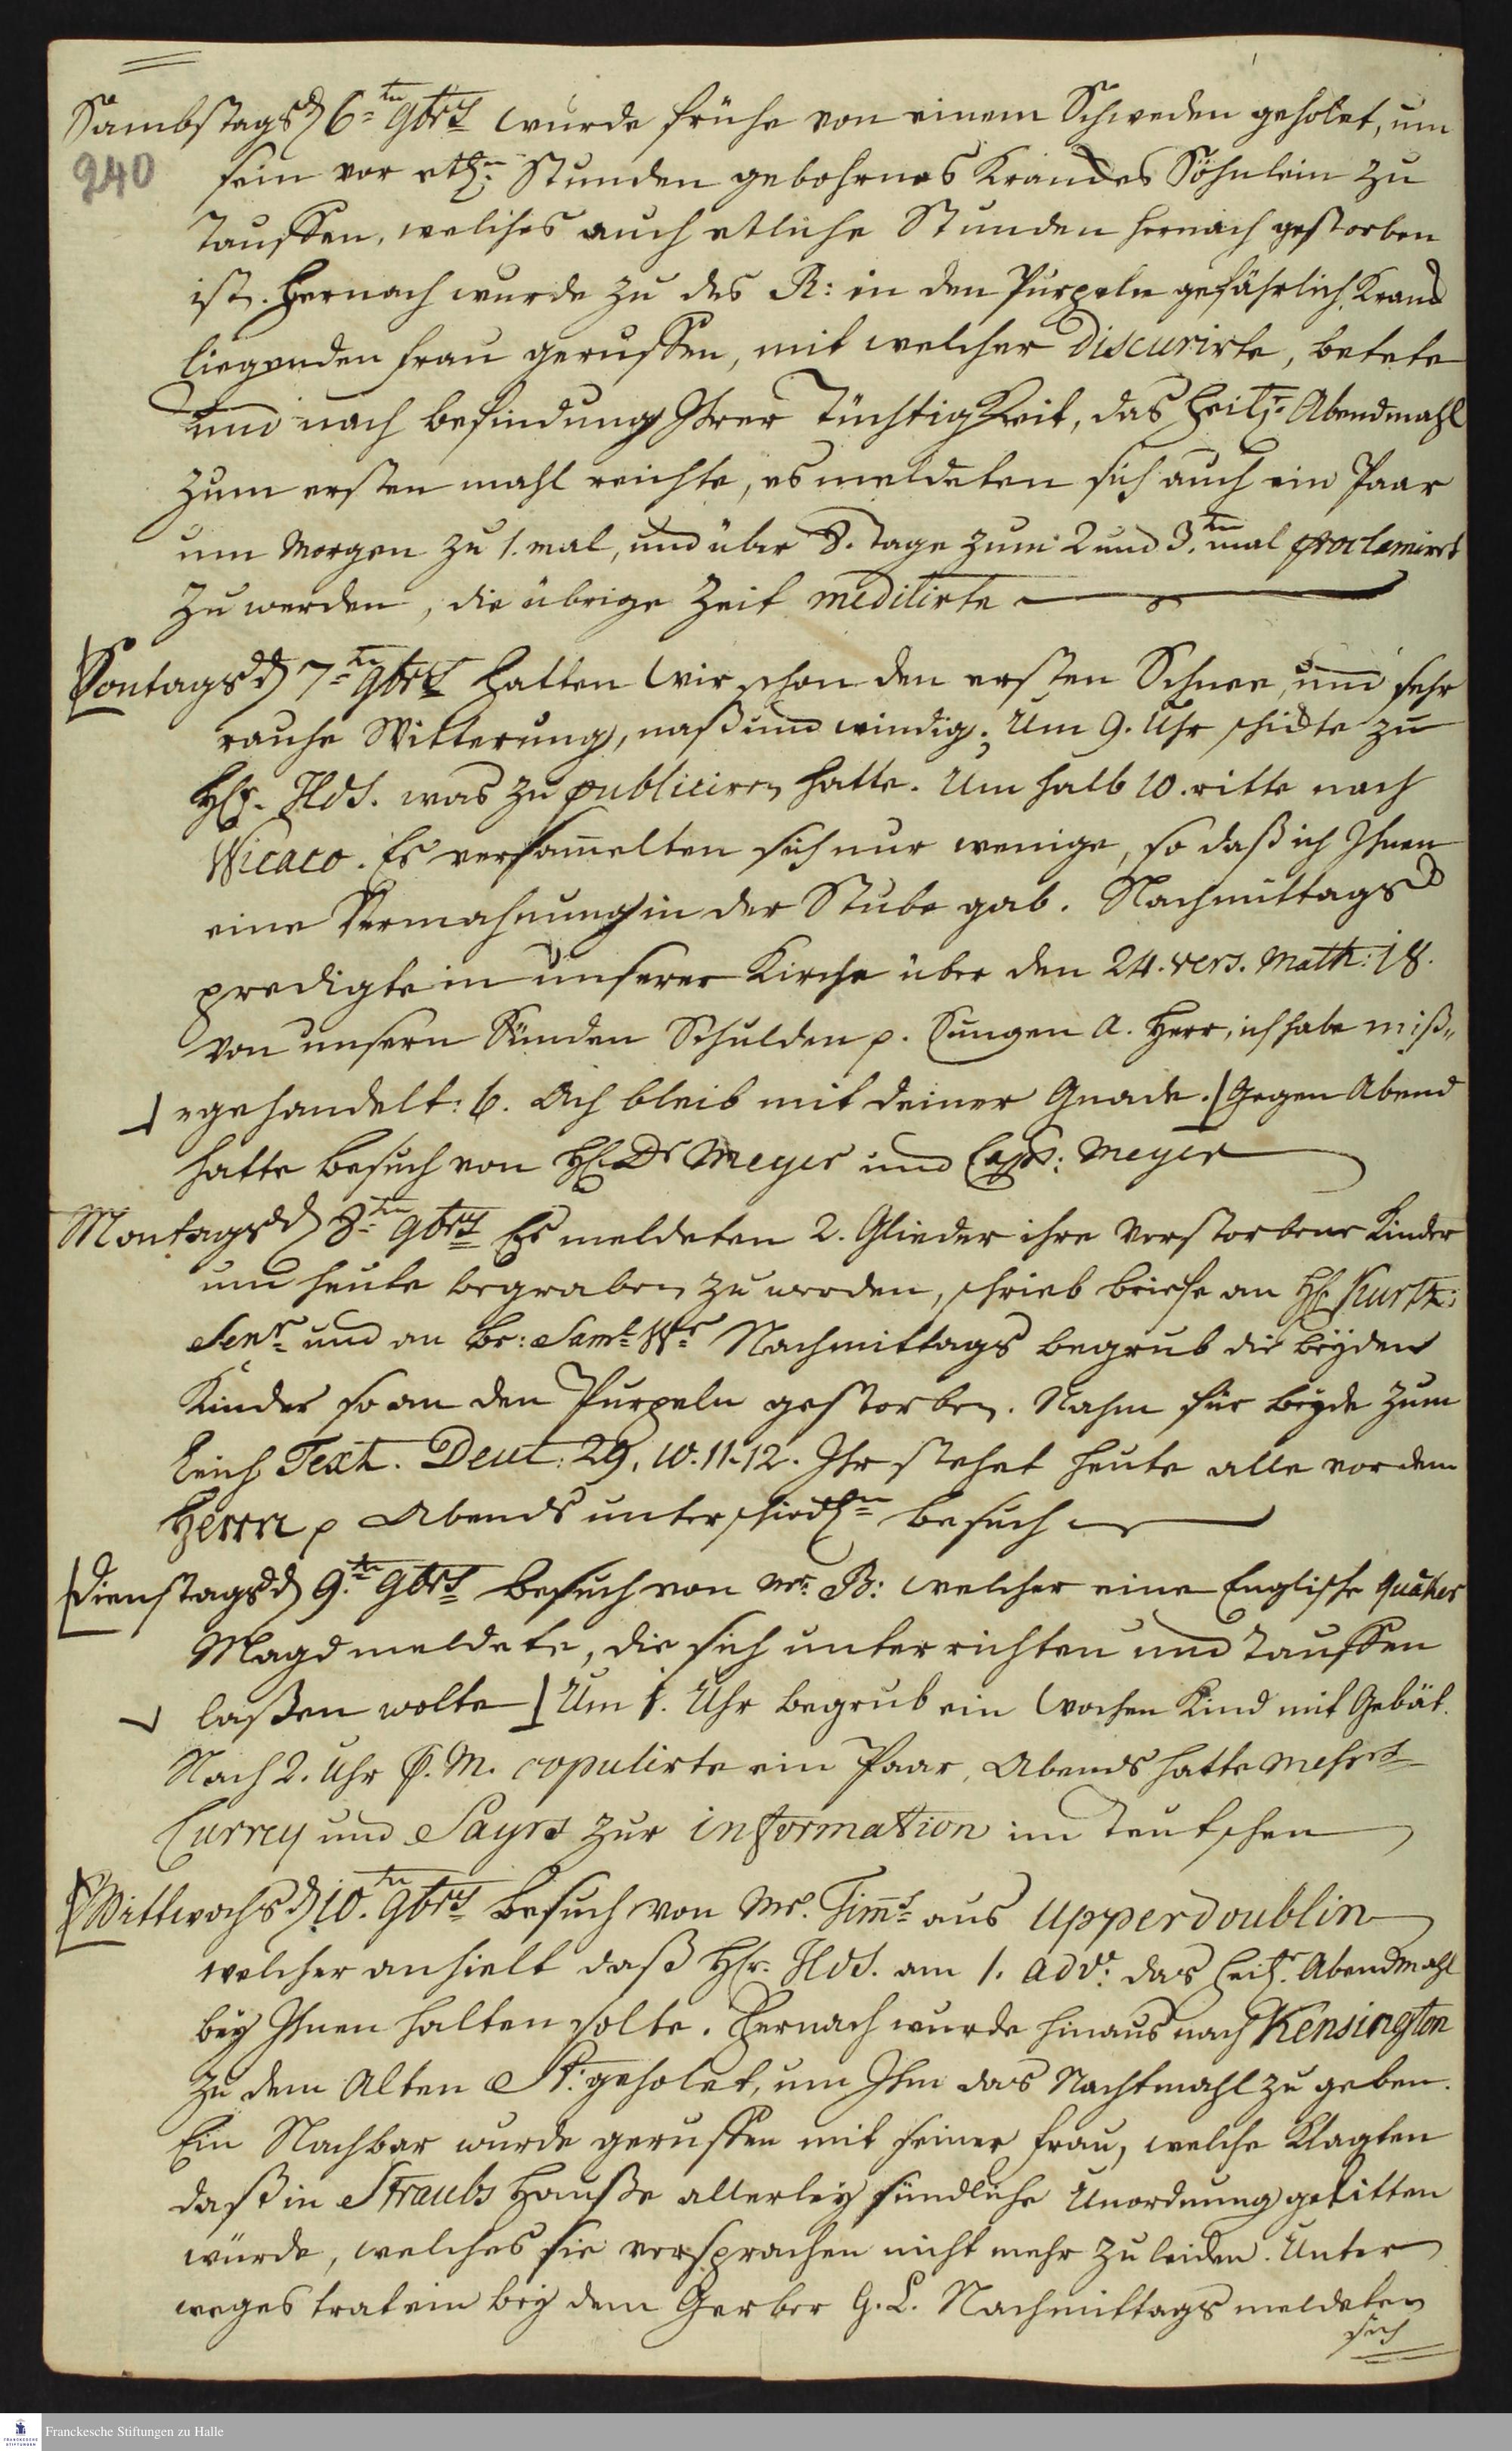 Sambstags d 6ten 9brs wurde frühe von einem Schweden geholet, um
240
sein vor etl: Stunden gebohrnes Krances Söhnlein zu
Tauffen, welches auch etliche Stunden hernach gestorben
ist. Hernach wurde zu des R: in den Purpeln gefährlich Kranck
liegenden Frau geruffen, mit welcher discurirte, betete
und nach befindung Ihrer Tüchtigkeit, das Heil: Abendmahl
zum ersten mahl reichte, es meldeten sich auch ein Paar
um Morgen zu 1. mal, und über 8. Tage zum 2 und 3.ten mal proclamirt
zu werden, die übrige Zeit meditirte
Sontags d 7ten 9brs hatten wir schon den ersten Schnee, und sehr
rauhe Witterung, naß und windig; Um 9. Uhr schickte zu
H. Hds. was zu publiciren hatte. Um halb 10. ritte nach
Wicaco. Es versamelten sich nur wenige, so daß ich Ihnen
eine Vermahnung in der Stube gab. Nachmittags
predigte in unserer Kirche über den 24. vers. Math: 18.
von unsern Sünden Schulden p. Sungen a. Herr, ich habe miß„
gehandelt: b. Ach bleib mit deiner Gnade. Gegen Abend
hatte besuch von H. Dr Meyer und Capt: Meyer
Montags d 8ten 9brs Es meldeten 2. Glieder ihre verstorbene Kinder
um heute begraben zu werden, schrieb briefe an H. Kurtz:
Senr und an br: Saml Wr Nachmittags begrub die beyden
Kinder so an den Purpeln gestorben. Nahm für beyde zum
Leich Text. Deut: 29, 10.11.12. Ihr stehet heute alle vor dem
Herrn p Abends unterschiedl besuch
Dienstags d 9ten 9brs besuch von Mr: B: welcher eine Englische Quäker
Magd meldete, die sich unterrichten und tauffen
laßen wolte Um 1. Uhr begrub ein Wochen Kind mit Gebät.
Nach 2. Uhr P. M. copulirte ein Paar, Abends hatte Messrs
Currey und Sayrs zur information im Teutschen
Mittwochs d 10.ten 9brs besuch von Mr. Timms aus Upperdoublin
welcher anhielt daß H. Hds. am 1. adv: das heil. Abendmahl
bey Ihnen halten solte. Hernach wurde hinaus nach Kensington
zu dem Alten St: geholet, um Ihm das Nachtmahl zu geben.
Ein Nachbar wurde geruffen mit seiner Frau, welche klagten
daß in Straubs Hauße allerley sündliche Unordnung gelitten
würde, welches sie versprachen nicht mehr zu leiden. Unter
weges trat ein bey dem Gerber G. L. Nachmittags meldeten
sich
Franckesche Stiftungen zu Halle